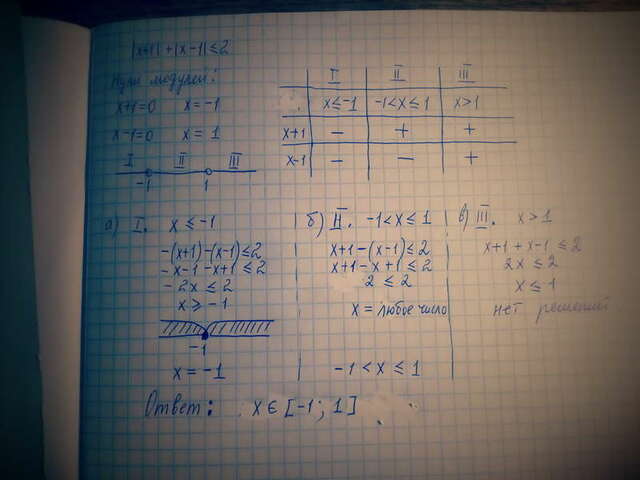 |x+1| + |x-1| ≤ 2
Нули модулей:
x+1=0 x=-1
x-1=0 x=1
I II III
-1 1
I II III
x≤-1 -1<x≤1 x>1
x+1 - + +
x-1 - - +
а) I. x ≤ -1
-(x+1)-(x-1)≤2
-x-1-x+1≤2
-2x≤2
x≥-1
-1
x=-1
б) II. -1<x≤1
x+1-(x-1)≤2
x+1-x+1≤2
2≤2
x = любое число
-1<x≤1
в) III. x>1
x+1+x-1≤2
2x≤2
x≤1
нет решений
Ответ: x∈[-1; 1]